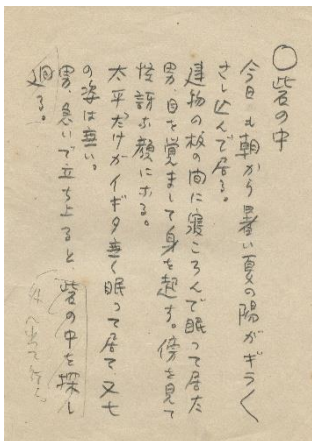 ○砦の中
今日も朝から暑い夏の陽がギラ〱
さし込んで居る。
建物の板の間に寝ころんで眠って居た
男、目を覚まして身を起す。傍を見て
怪訝な顔になる。
太平だけがイギタ無く眠って居て又七
の姿は無い。
男、急いで立ち上ると、砦の中を探し
廻る。
外へ出て行る。